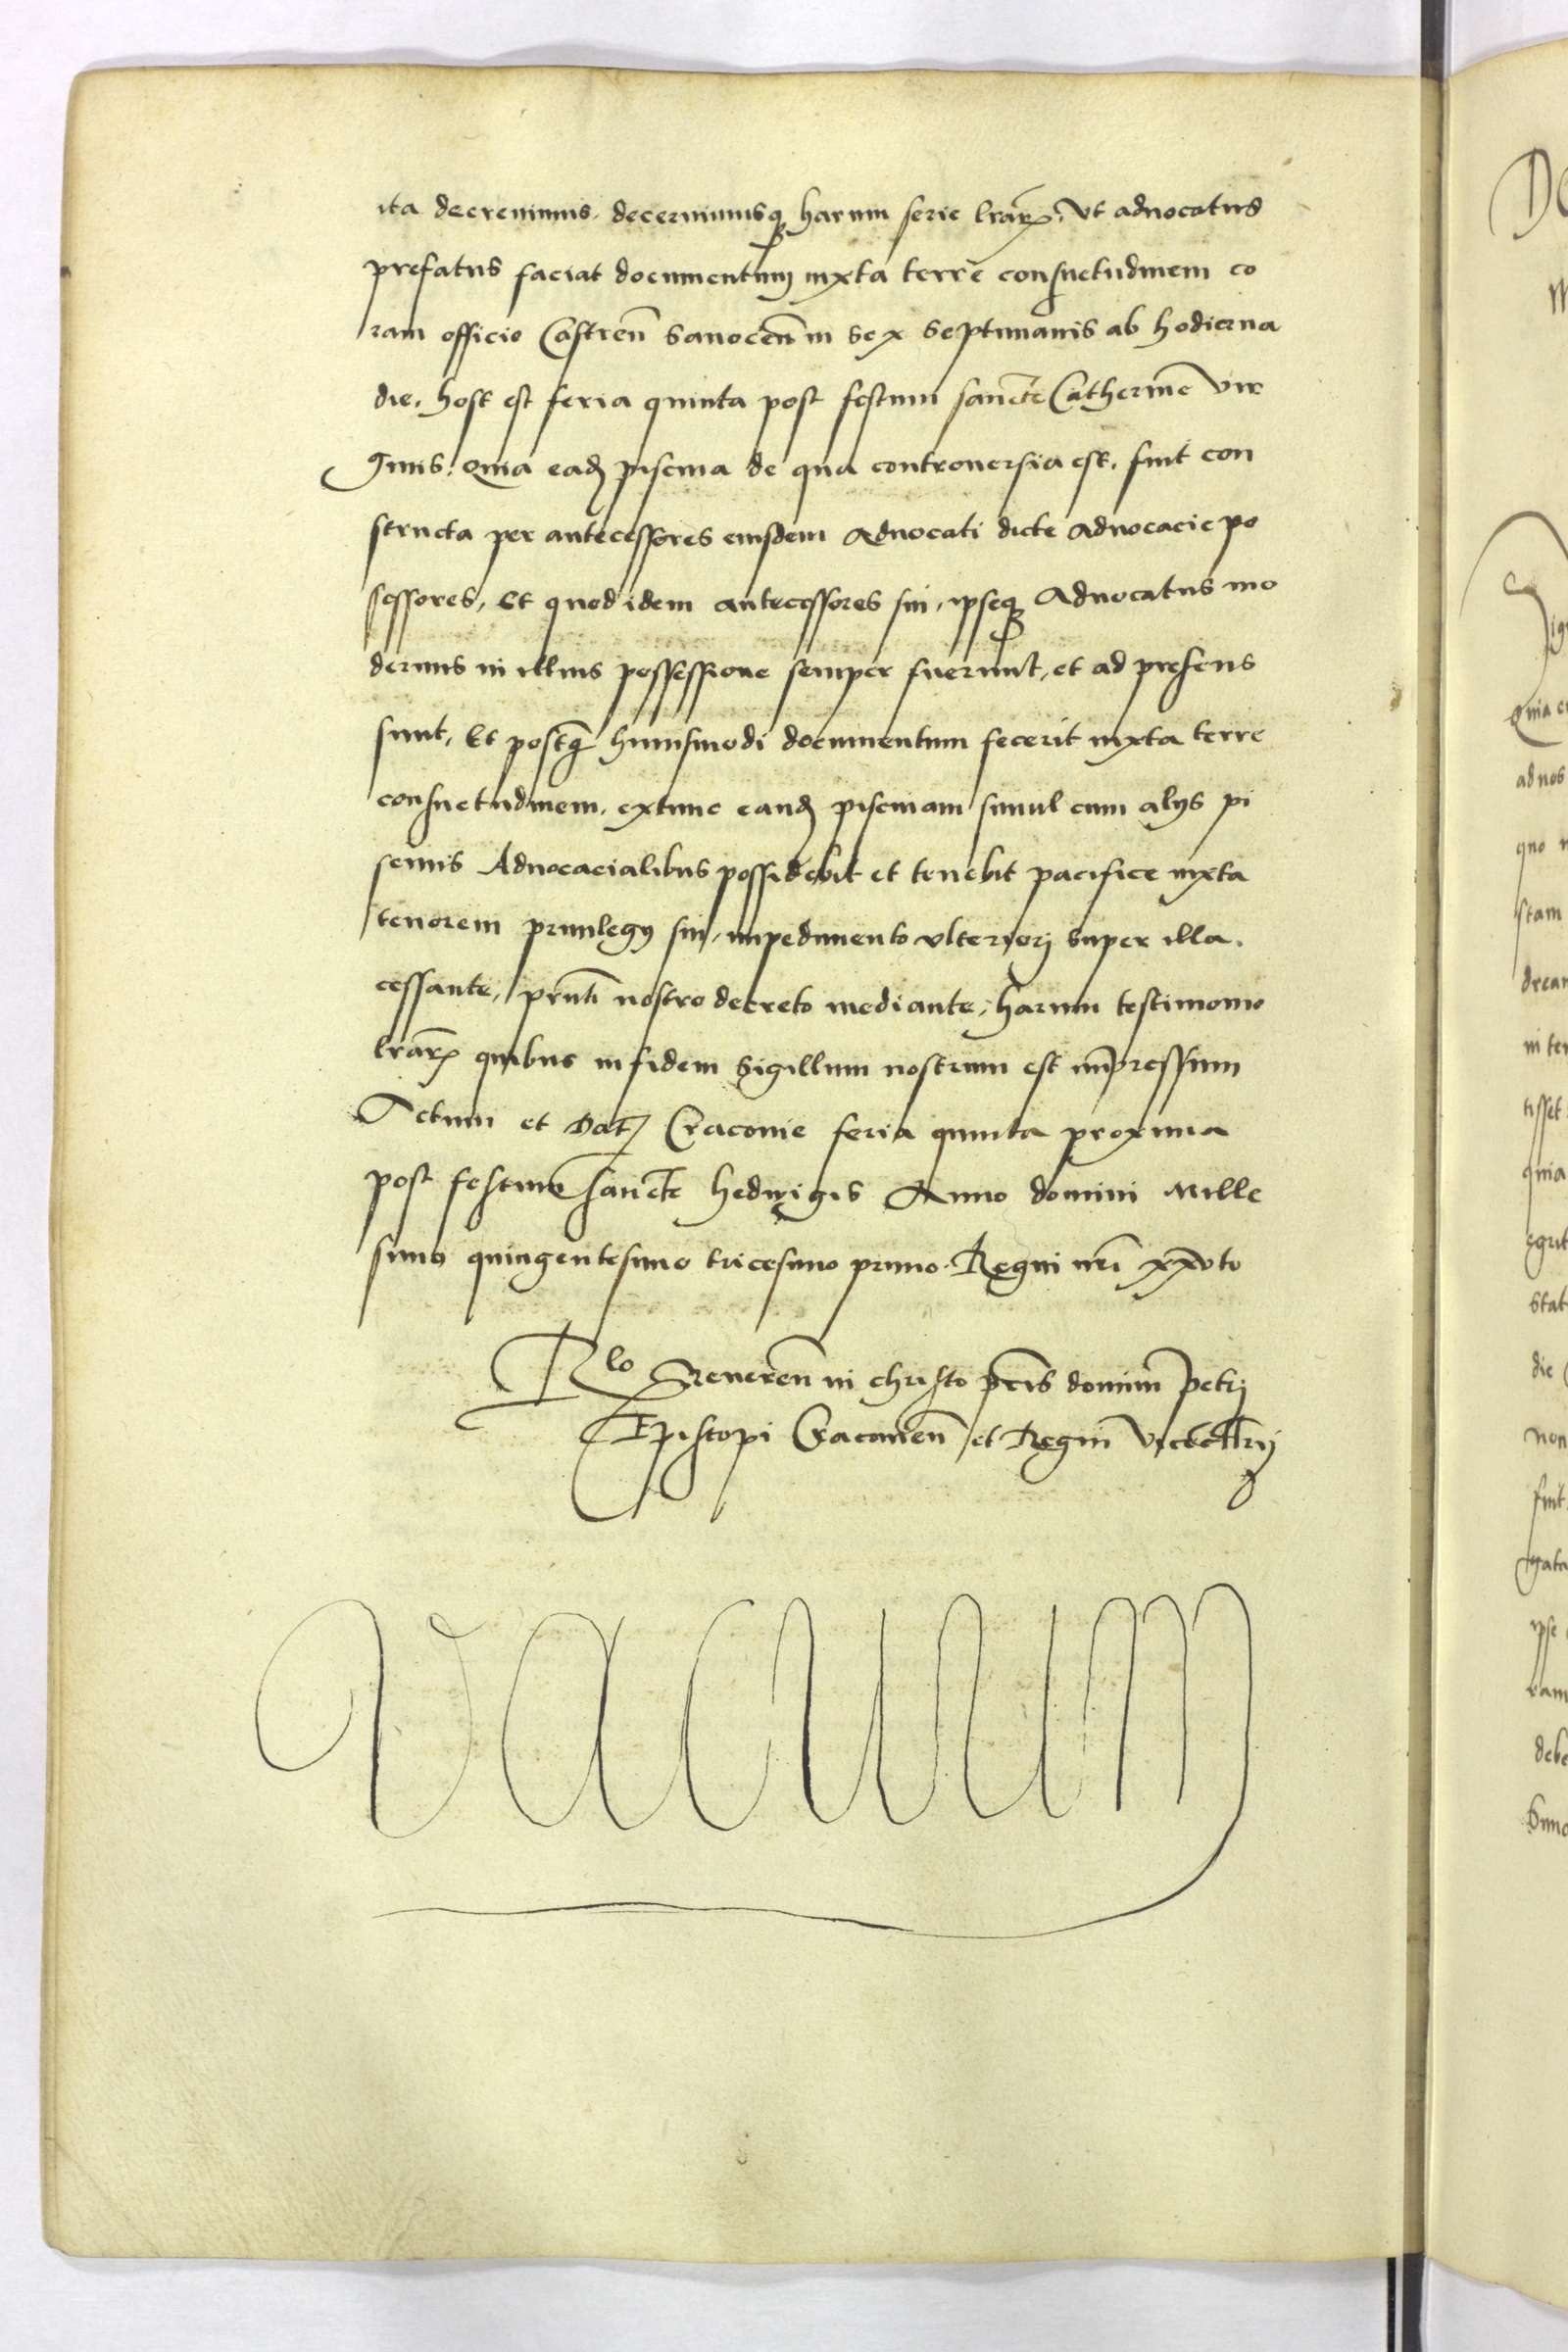 ita decrevimus. decernimusq harum serie lrarꝝ. Vt advocatus
prefatus faciat documentum iuxta terre consuetudinem co
ram officio Castren̄ Sanocen̄ in Sex Septimanis ab hodierna
die. host est feria quinta post festum sancte Catherine vir
ginis. Quia eadꝫ piscina de qua controversia est. fuit con
structa per antecessores eiusdem Advocati dicte Advocacie po
sessores, Et quod idem antecessores sui, ipseq Advocatus mo
dernus in illius possessione semper fuerunt, et ad presens
sunt, Et postq̄ huiusmodi documentum fecerit iuxta terre
consuetudinem. extunc eandꝫ piscinam simul cum alys pi
scinis Advocacialibus possidebit et tenebit pacifice iuxta
tenorem privilegy sui, impedimento vlteriori super illa.
cessante, pr̄nti nostro decreto mediante, harum testimonio
lrarꝝ quibus in fidem Sigillum nostrum est impressum
Actum et Datꝫ Cracovie feria quinta proxima
post festum sancte hedwigis Anno domini Mille
simo quingentesimo tricesimo primo. Regni nr̄i xxvto
Rlo Reveren̄ in christo pr̄is domini Petri
Episcopi Cracovien̄ et Regni Vicecellrij
Vacuum